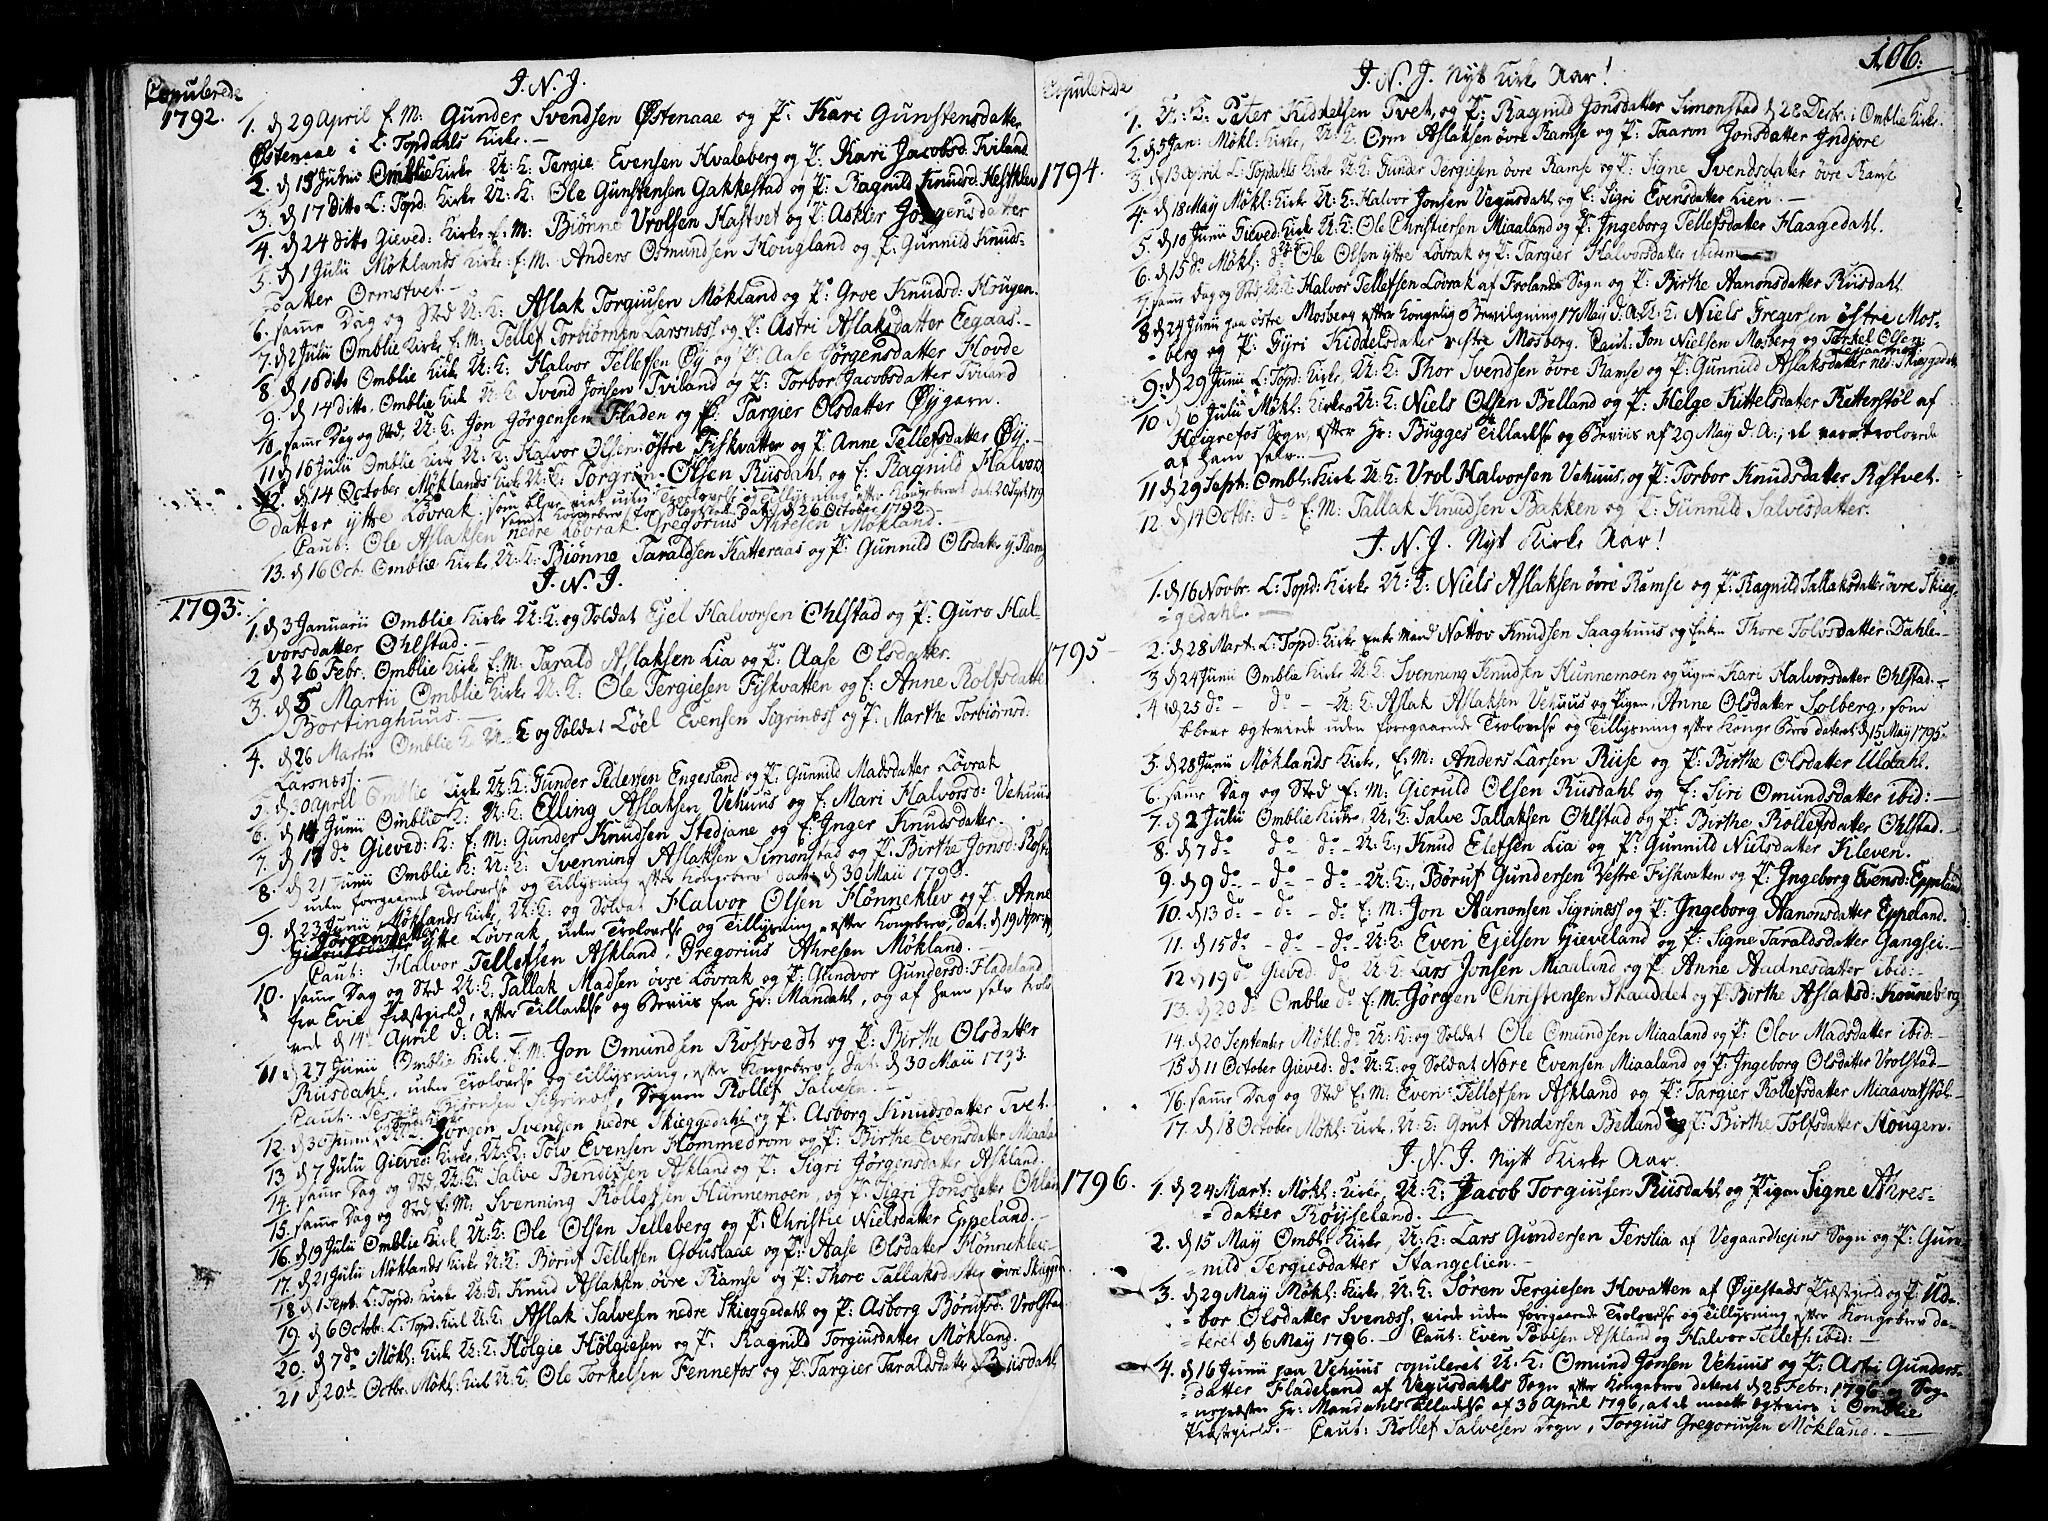 Copulerede
1792.
J. N. J.
1. d 29 April E: M: Gunder Svendsen Østenaae og P: Kari Gunstensdatter
Østenaae i L: Topdahls Kirke. —
2. d 15 Julii Omblie Kirke U: K: Tergie Evensen Hvalsberg og P: Kari Jacobsd: Tviland
3. d 17 Ditto L: Topd: Kirke U: K: Ole Gunstensen Gakkestad og P: Ragnild Knudsd: Hestklev
4. d 24 Ditto Gieved: Kirke E: M: Biønne Vrolsen Hastvet og P: Askier Jørgensdatter
5. d 1 Julii Møklands Kirke E: M: Anders Osmundsen Hougland og P: Gunnild Knuds-
datter Ormstvet. —
6. samme Dag og Sted U: K: Aslak Torgiusen Møkland og P: Groe Knudsd: Hougen.
7. d 2 Julii Omblie Kirke E. M: Tellef Torbiørnsen Larsnæs og P: Astri Aslaksdatter Eegaas. —
8. d 10 dito Omblie Kirk U: K: Halvor Tellefsen Øÿ og P: Aase Jørgensdatter Hovde
9. d 14 Ditto. Omblie Kirk U: K: Svend Jonsen Tviland og P: Torbor Jacobsdatter Tviland
10. samme Dag og Sted, U: K: Jon Jørgensen Fladen og P: Targier Olsdatter Øÿgarn.
11 d 16 Julii Omblie Kirke U: K: Halvor Olsen østre Fiskvatten og P: Anne Tellefsdatter Øÿ. —
12. d 14 October Møklands Kirke U: K: Torgrim Olsen Riisdahl og E: Ragnild Halvors
datter ÿtte Løvrak. som blev viet uden Trolovelse og Tillÿsning efter Kongebrev dat: 20 Sept 179
samt Kongebrev for Slegtskab Dat: d 26 October 1792
Caut: Ole Aslaksen nedre Løvrak. Gregorius Ahresen Møkland. —
13. d 16 Oct. Omblie Kirke, U: K: Biønne Taraldsen Katteraas og P: Gunnild Olsdatter ÿ. Rams
J. N. J.
1793.
1. d 3 Januarii Omblie Kirke U: K: og Soldat Ejel Halvorsen Ohlstad og P: Guro Hal-
vorsdatter Ohlstad. —
2 d 26 Febr. Omblie Kirk E: M: Tarald Aslaksen Lia og P: Aase Olsdatter.
3. d 5 Martii Omblie Kirke U: K: Ole Tergiesen Fiskvatten og E: Anne Rolfsdatte
Bortinghuus. —
4. d 26 Martii Omblie K: U. K og Soldat Løel Evensen Sigrinæss og P: Marthe Torbiørnsd:
Larsnæss: —
5. d 30 April Omblie Kirke U: K: Gunder Pedersen Engesland og P: Gunnild Madsdatter Løvrak
6. d 14 Junii Omblie K: U: K: Elling Aslaksen Vehuus og E: Mari Halvorsd: Vehuus
7. d 17 do Gieved: K: E: M: Gunder Knudsen Stedjane og E: Inger Knudsdatter.
8. d 21 Junii Omblie K: U: K: Svenning Aslaksen Simonstad og P: Birthe Jonsd: Rostv
uden forgaaende Trolovelse og Tillÿsning efter Kongebrev Dat: d 30 Maii 1793.
9. d 23 Junii Møklands Kirke, U: K: og Soldat Halvor Olsen Hønneklev og P: Anne
Jørgensdatter ÿtte Løvrak, uden Trolovelse og Tillÿsning efter Kongebrev, Dat. d 19 Apr: 179
Caut: Halvor Tellefsen Askland. Gregorius Ahresen Møkland. —
10. samme Dag og Sted U: K: Tallak Madsen øvre Løvrak og P: Gunvor Gundersd: Fladeland
fra Evie Præstegield, efter Tilladelse og Beviis fra Hr: Mandahl, og af ham selv trolo
vede d 14 April d. A: —
11. d 27 Junii Omblie Kirk E. M: Jon Omundsen Rostvedt og P: Birthe Olsdatter
Riisdahl, uden Trolovelse og Tillÿsning, efter Kongebrev, Dat: d 30 Maii 1793.
Caut: Tergie Biørnsen Sigrinæs, Sognem Rollef Salvesen. —
12. d 30 Junii L: Topd: Kirke Jørgen Svendsen nedre Skieggedahl og P: Asborg Knudsdatter Tvet.
13 d 7 Julii Gieved: Kirke, U: K: Tolv Evensen Hommedrom og P: Birthe Evensdatter Miaalan
14. samme Dag og Sted, U: K: Salve Bendixsen Askland og P: Sigri Jørgensdatter Askland.
15. samme Dag og Sted E: M: Svenning Rollefsen Hunnemoen, og P: Sigri Jonsdatter Ohlsta
16. d 19 Julii Omblie Kirk U: K: Ole Olsen Selleberg og P: Christie Nielsdatter Eppeland. —
17. d 21 Julii Møklands Kirke U: K: Børuf Tellefsen Gouslaae og P: Aase Olsdatter Hønneklev —
18 d 1 Sept: L: Topd: Kirke U: K: Knud Aslaksen øvre Ramse og P: Thore Tallaksdatter øvre Skiegge
19. d 6 Octobr: L: Topd: Kirk U: K: Aslak Salvesen nedre Skieggedahl og P: Asborg Børufsd: Vrolstad
20. d 7 do Møkl: Kirk U: K: Hølgie Hølgiesen og P: Ragnild Torgiusdatter Møkland.
21 d 20de Octbr: Møkl: Kirk U: K: Ole Torkelsen Fennefos og P: Targier Taraldsdatter Riisdahl
106.
Copulerede
J. N. J. Nÿtt Kirke Aar!
1. U: K: Peter Kiddelsen Tvet, og P: Ragnild Jonsdatter Simonstad d 28 Decbr: i Omblie Kirke.
1794.
2. d 5 Jan: Møkl: Kirke, U: K: Orm Aslaksen øvre Ramse og P: Taaron Jonsdatter Indjore
3. d 13 April L: Topdahls Kirke U: K: Gunder Tergiesen øvre Ramse og P: Signe Svendsdatter øvre Ramse
4. d 18 Maÿ Møkl: Kirke U: K: Halvor Jonsen Vegusdahl og E: Sigri Evensdatter Lien. —
5. d 10 Junii Gieved: Kirke U: K: Ole Christiersen Miaaland og P: Ingeborg Tellefsdatter Haagedahl.
6. d 15 do Møkl: do Ole Olsen ÿtte Løvrak og P: Targier Halvorsdatter ibidem
7. samme Dag og Sted, U: K: Halvor Tellefsen Løvrak af Frolands Sogn og P: Birthe Aanonsdatter Riisdahl.
8. d 24 Junii paa østre Mosberg efter Kongelig Bevilgning 17 Maÿ d. A. U: K: Niels Gregersen østre Mos-
berg og P: Gÿri Kiddelsdatter vestre Mosberg. Caut: Jon Nielsen Mosberg og Torkel Olsen
9. d 29 Junii L: Topd: Kirke, U: K: Thor Svendsen øvre Ramse og P: Gunnild Aslaksdatter ned: Skieggedahl
10. d 6 Julii Møkl: Kirke U: K: Niels Olsen Belland og P: Helge Kittelsdatter Retterstøl af
Heigrefos Sogn, efter Hr: Bugges Tilladelse og Beviis af 29 Maÿ d. A:, de vare trolovede
af ham selv. —
11 d 29 Sept: Ombl: Kirk U: K: Vrol Halvorsen Vehuus, og P: Torbor Knudsdatter Røstvet.
12. d 14 Octbr: do E. M: Tallak Knudsen Bakken og E: Gunnild Salvesdatter.
J. N. J. Nÿt Kirke Aar!
1. d 16 Novbr. L: Topd: Kirke U: K: Niels Aslaksen øvre Ramse og P: Ragnild Tallaksdatter øvre Skieg-
gedahl. —
1795 —
2. d 28 Mart. L: Topd: Kirke Enke Mand Nottov Knudsen Saaghuus og Enken Thore Tolvsdatter Dahle. —
3 d 24 Junii Omblie Kirke U: K: Svenning Knudsen Hunnemoen og Pigen Kari Halvorsdatter Ohlstad. —
4 d 25 do — do — U: K: Aslak Aslaksen Vehuus og Pigen, Anne Olsdatter Solberg, som
bleve ægteviede uden foregaaende Trolovelse og Tillÿsning efter Konge Brev dateret d 15 Maÿ 1795.
5. d 28 Junii Møklands Kirke, E: M: Anders Larsen Riise og P: Birthe Olsdatter Uldahl.
6. samme Dag og Sted E: M: Gieruld Olsen Riisdahl og E: Siri Omundsdatter ibid: —
7. d 2 Julii Omblie Kirke, U: K: Salve Tallaksen Ohlstad og P: Birthe Rollefsdatter Ohlstad. —
8. d 7 do do — do — U: K:, Knud Elefsen Lia og P: Gunnild Nielsdatter Kleven.
9. d 9 do — do — do — U: K:, Børuf Gundersen Vestre Fiskvatten og P: Ingeborg Evensd: Eppeland
10. d 13 do — do — do E: M: Jon Aanonsen Sigrinæss og P: Ingeborg Aanonsdatter Eppeland.
11. d 15 do — do — do — U: K: Even Ejelsen Gieveland og P: Signe Taraldsdatter Gangsei. —
12 d 19 do Gieved: do U: K: Lars Jonsen Miaaland og E: Anne Audnesdatter ibid: —
13. d 20 do Omblie do E. M: Jørgen Christensen Skauddet og P: Birthe Aslaksd: Kouneberg
14. d 20 September Møkl: do U: K: og Soldat Ole Omundsen Miaaland og P: Olov Madsdatter ibid: —
15 d 11 October Gieved: do U: K: og Soldat Nære Evensen Miaaland og P: Ingeborg Olsdatter Vrolstad —
16. samme Dag og Sted E. M: Even Tellefsen Askland og P: Targier Rollefsdatter Miaavatsløl. —
17. d 18 October Møkl: Kirke, U: K: Gout Andersen Belland og P: Birthe Tolfsdatter Hougen.
J. N. J. Nÿtt Kirke Aar.
1796.
1. d 24 Mart: Møkl: Kirke, U: K: Jacob Torgiusen Riisdahl og Pigen Signe Ahres-
datter Røÿseland. —
2. d 15 Maÿ Ombl: Kirke, U: K: Lars Gundersen Jerslia af Vegaardhejens Sogn og P: Gun-
nild Tergiesdatter Stangelien. —
3. d 29 Maÿ Møkl: Kirke, U: K: Søren Tergiesen Hovatten af Øÿestads Præstegield og P: Ud-
bor Olsdatter Svenæss, viede uden forgaaende Trolovelse og Tillÿsning efter Kongebrev da-
teret d 6 Maÿ 1796. — Caut: Even Povelsen Askland og Halvor Tellefs: ibid: —
4. d 16 Junii paa Vehuus copuleret U: K: Omund Jonsen Vehuus og P: Astri Gunders-
datter Fladeland af Vegusdahls Sogn efter Kongebrev dateret d 25 Febr: 1796 og Sog-
nepræsten Hr: Mandahls Tilladelse af 30 April 1796, at de maatte ægtevies i Omblie
Præstegield. — Caut: Rollef Salvesen Degn, Torgius Gregoriusen Møkland. —